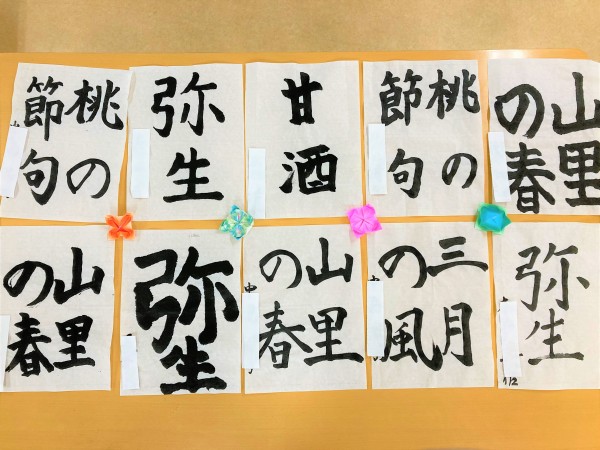 桃の
節句
弥生
甘酒
桃の
節句
山里
の春
山里
の春
弥生
山里
の春
三月
の風
弥生